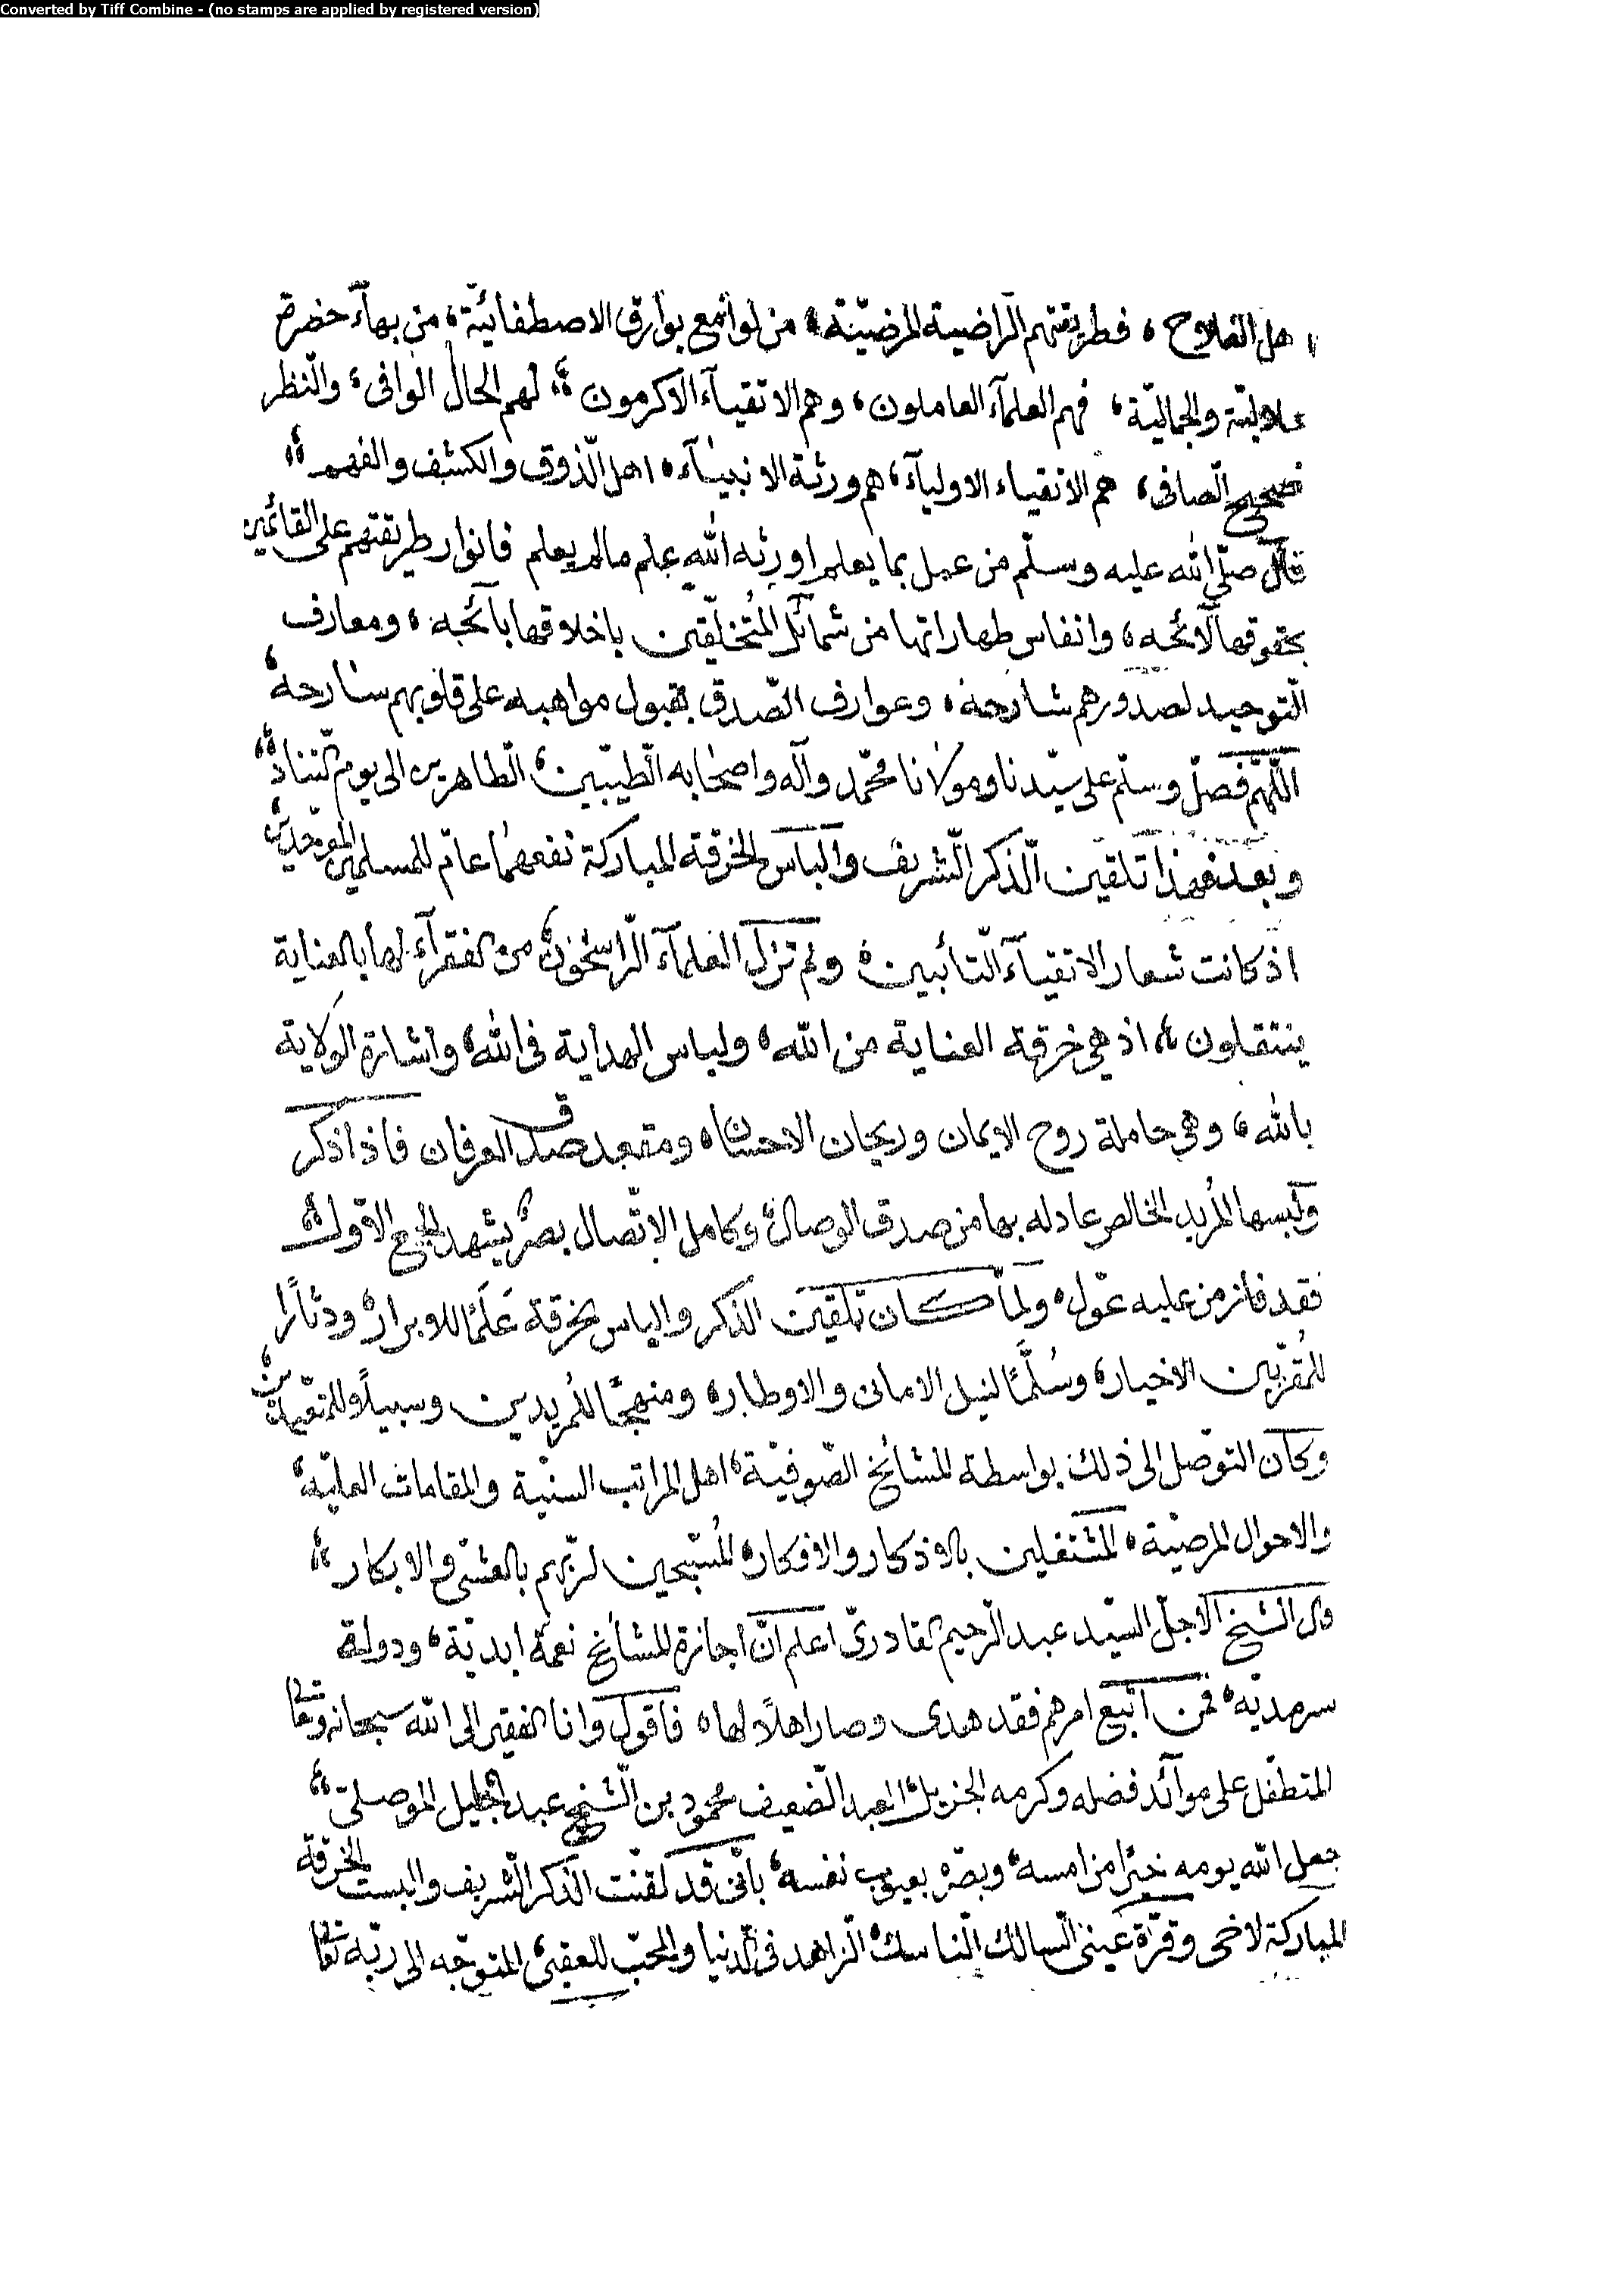 Converted by Tiff Combine - (no stamps are applied by registered version)
اهل الفلاح، فطريقتهم الراضية المرضيّة، من لوائمع بوارق الاصطفائيّة، من بهآء حضرة
والجماليّة، فهم العلمآء العاملون، وهم الاتقيآء الاكرمون، لهم الحال الوافى، والنّظر
الصحيح الصافى، هم الاتقياء الاوليآء، هم ورثة الانبيآء، اهل الذّوق والكشف والفهم،
قال صلّى الله عليه وسلّم من عمل بما يعلم اورثه الله علم مالم يعلم فانوار طريقتهم على القائمين
بحقوقها لآئحه، وانفاس طهاراتها من شمائل المُتخلّقين باخلاقها بآئحة، ومعارف
التّوحيد لصدورهم شارحة، وعوارف الصّدق بقبول مواهبه على قلوبهم سارحة،
اللّهمّ فصلّ وسلّم على سيّدنا ومولانا محمّد وآله واصحابه الطّيّبين، الطّاهرين الى يوم التّناد،
وبعد فهذا تلقين الذّكر الشّريف والباس الخرقة المباركة نفعهما عامّ للمسلمين الموحّدين،
اذ كانت شعار الاتقيآء التّأبين، ولم تزل العلمآء الرّاسخون من الفقرآء لها بالعناية
ينتقلون، اذ هى خرقة العناية من الله، ولباس الهداية فى الله، واشارة الولاية
بالله، وهى حاملة روح الايمان وريحان الاحسان، ومقعد صدق العرفان فاذا ذكر
ولبسها المُريد الخالص عادله بها من صدق الوصال، وكامل الاتّصال بصر يشهد الاول،
فقد فاز من عليه عوّل، ولمّا كان تلقين الذكر والباس الخرقة عَلَمًا للابرار، ودثارًا
للمُقرّبين الاخيار، وسُلَّمًا لنيل الامانى والاوطار، ومنهجًا للمُريدين وسبيلاً
وكان التوصّل الى ذلك بواسطة المشائخ الصّوفيّة، اهل المراتب السنيّة والمقامات العليّة،
والاحوال المرضيّة، المشتغلين بالاذكار والافكار، المُسبّحين لربّهم بالعشىّ والابكار،
وال الشيخ الاجلّ السيّد عبد الرّحيم القادرىّ اعلم انّ اجازة المشائخ نعمة ابديّة، ودولة
سرمديّه، فمن اتّبع امرهم فقد هدى وصار اهلاً لها، فاقول وانا الفقير الى الله سبحانه وتعالى
المتطفّل على موآئد فضله وكرمه الجزيل، العبد الضّعيف محمود بن الشّيخ عبد الجليل الموصلىّ،
جعل الله يومه خيرًا من امسه، وبصّره بعيوب نفسه، بانّى قد لقّنت الذّكر الشّريف والبست الخرقة
المباركة لاخى وقرّة عينى السالك النّاسك، الزّاهد فى الدّنيا والمحبّ للعقبى، المتوجّه الى ربّه تعالى